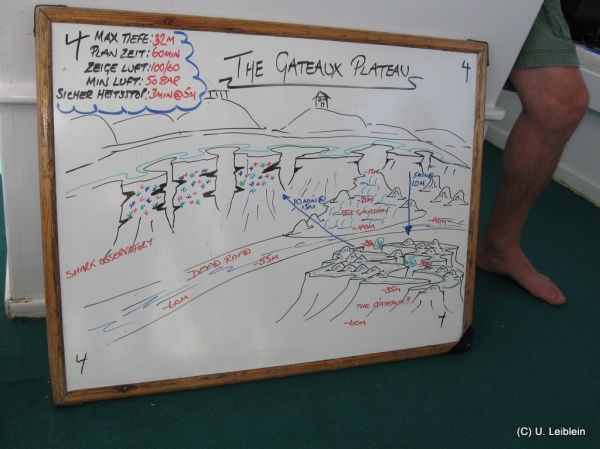 4
MAX TIEFE: 32M
PLAN ZEIT: 60MIN
ZEIGE LUFT: 100/60
MIN LUFT: 50 BAR
SICHERHEITSSTOP: 3MIN@5M
THE GATEAUX PLATEAU
4
5MIN@
10M
10MIN@
15M
-20M
EEL GARDEN
-40M
SHARK OBSERVATORY
DEAD ROAD
-55M
-60M
-35M
THE GATEAUX!!
-60M
4
4
(C) U. Leiblein